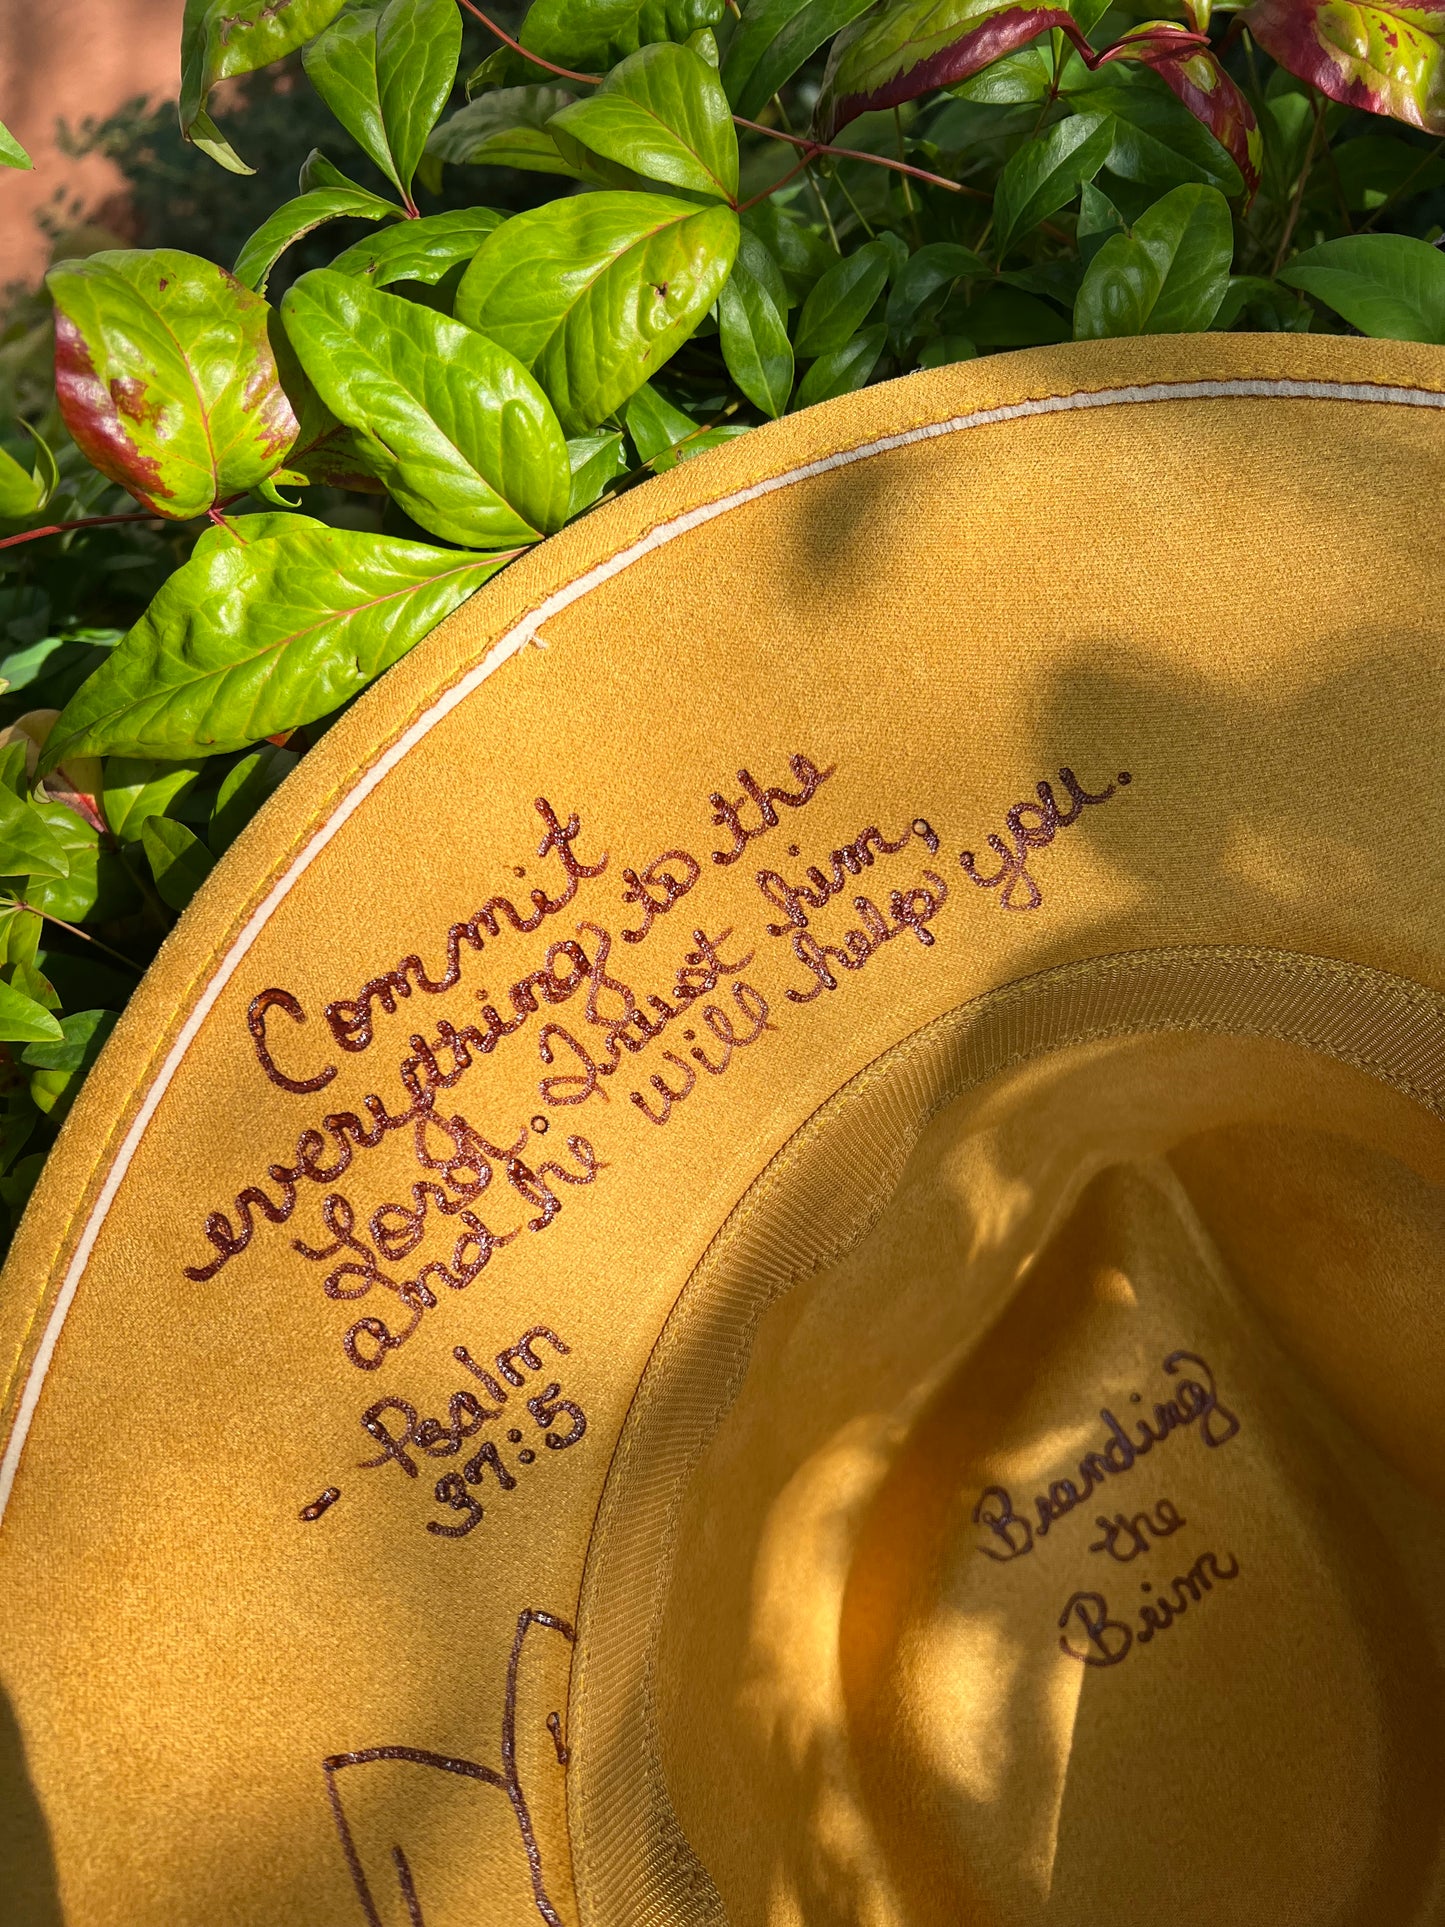 Commit
everything to the
Lord. Trust him,
and he will help you.
- Psalm
37:5
Branding
the
Brim